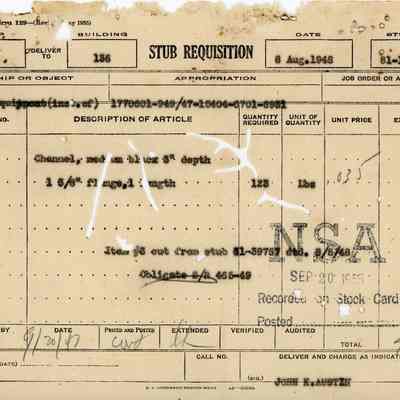 BUILDING
DATE
DELIVER
TO
136
STUB REQUISITION
6 Aug. 1948
OR OBJECT
APPROPRIATION
JOB ORDER OR
1770601-949/47-10404-6701-6951
DESCRIPTION OF ARTICLE
QUANTITY
REQUIRED
UNIT OF
QUANTITY
UNIT PRICE
Channel, medium black 6" depth
.035
flange, 1 length
123
lbs
Item #3 cut from stub 61-39757 dtd. 8/5/48
Obligate
465-49
NSA
SEP 20
Recorded on Stock Card
Posted
BY
DATE
PRICED AND POSTED
EXTENDED
VERIFIED
AUDITED
TOTAL
DATE)
CALL NO.
DELIVER AND CHARGE AS
(SIG.)
JOHN K. AUSTIN